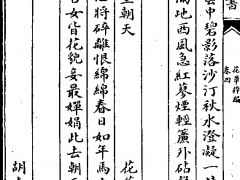 花草粹編
卷四
雲中碧影落沙汀秋水澄凝一
滿地西風急紅蓼煙輕簾外砧
朝天 花
將碎離恨綿綿春日如年馬
女皆花貌妾最嬋娟此去朝
胡